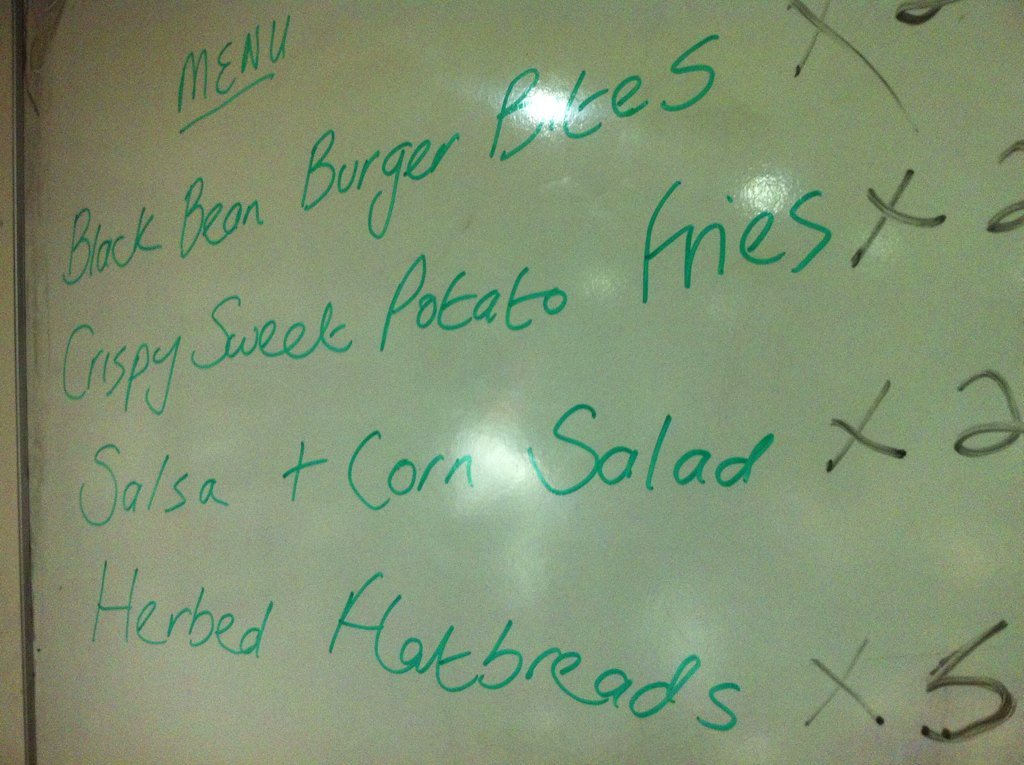 MENU
Black Bean Burger Bites x
Crispy Sweet Potato Fries x 2
Salsa + Corn Salad x 2
Herbed Flatbreads x .5